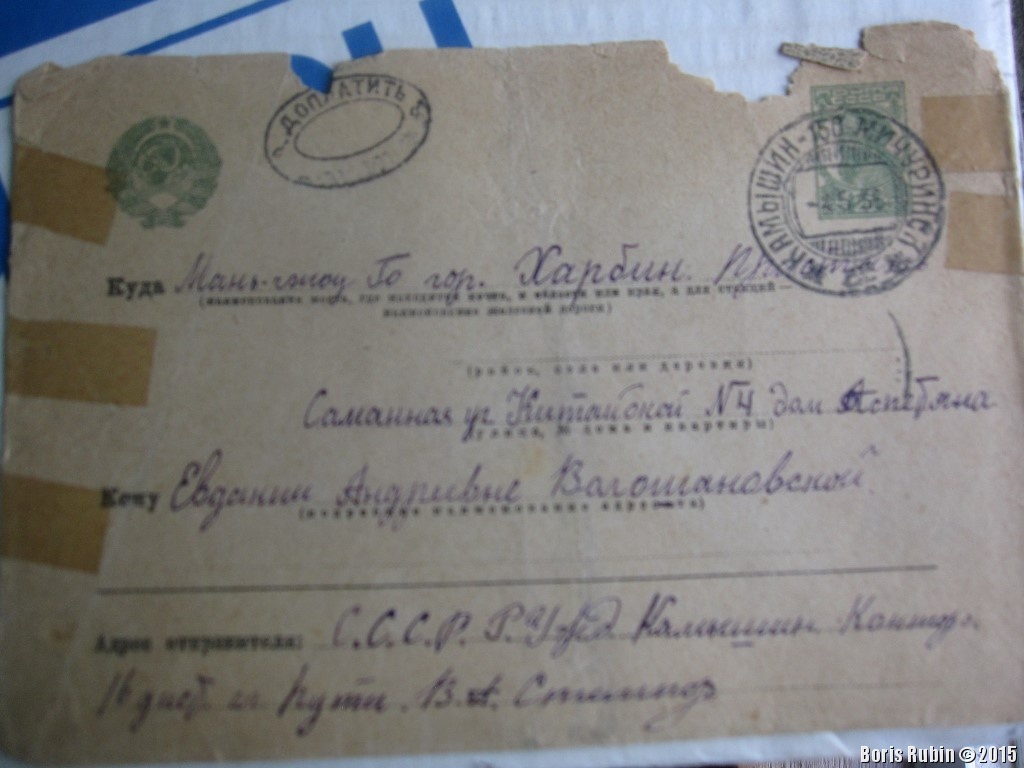 ДОПЛАТИТЬ
КАМЫШИН-150 МИЧУРИНСК
Куда Мань-гжоу Го гор. Харбин.
(наименование места, где находится почта, и области или края, а для станций —
наименование железной дороги)
(район, село или деревня)
Саманная ул Китайской №4 дом
(улица, № дома и квартиры)
Кому Евдании Андриевне Вагошановской
(подробное наименование адресата)
Адрес отправителя: С.С.С.Р. Р.У.ж.д Камышин
16 дист. сл Пути В.А.
Boris Rubin © 2015